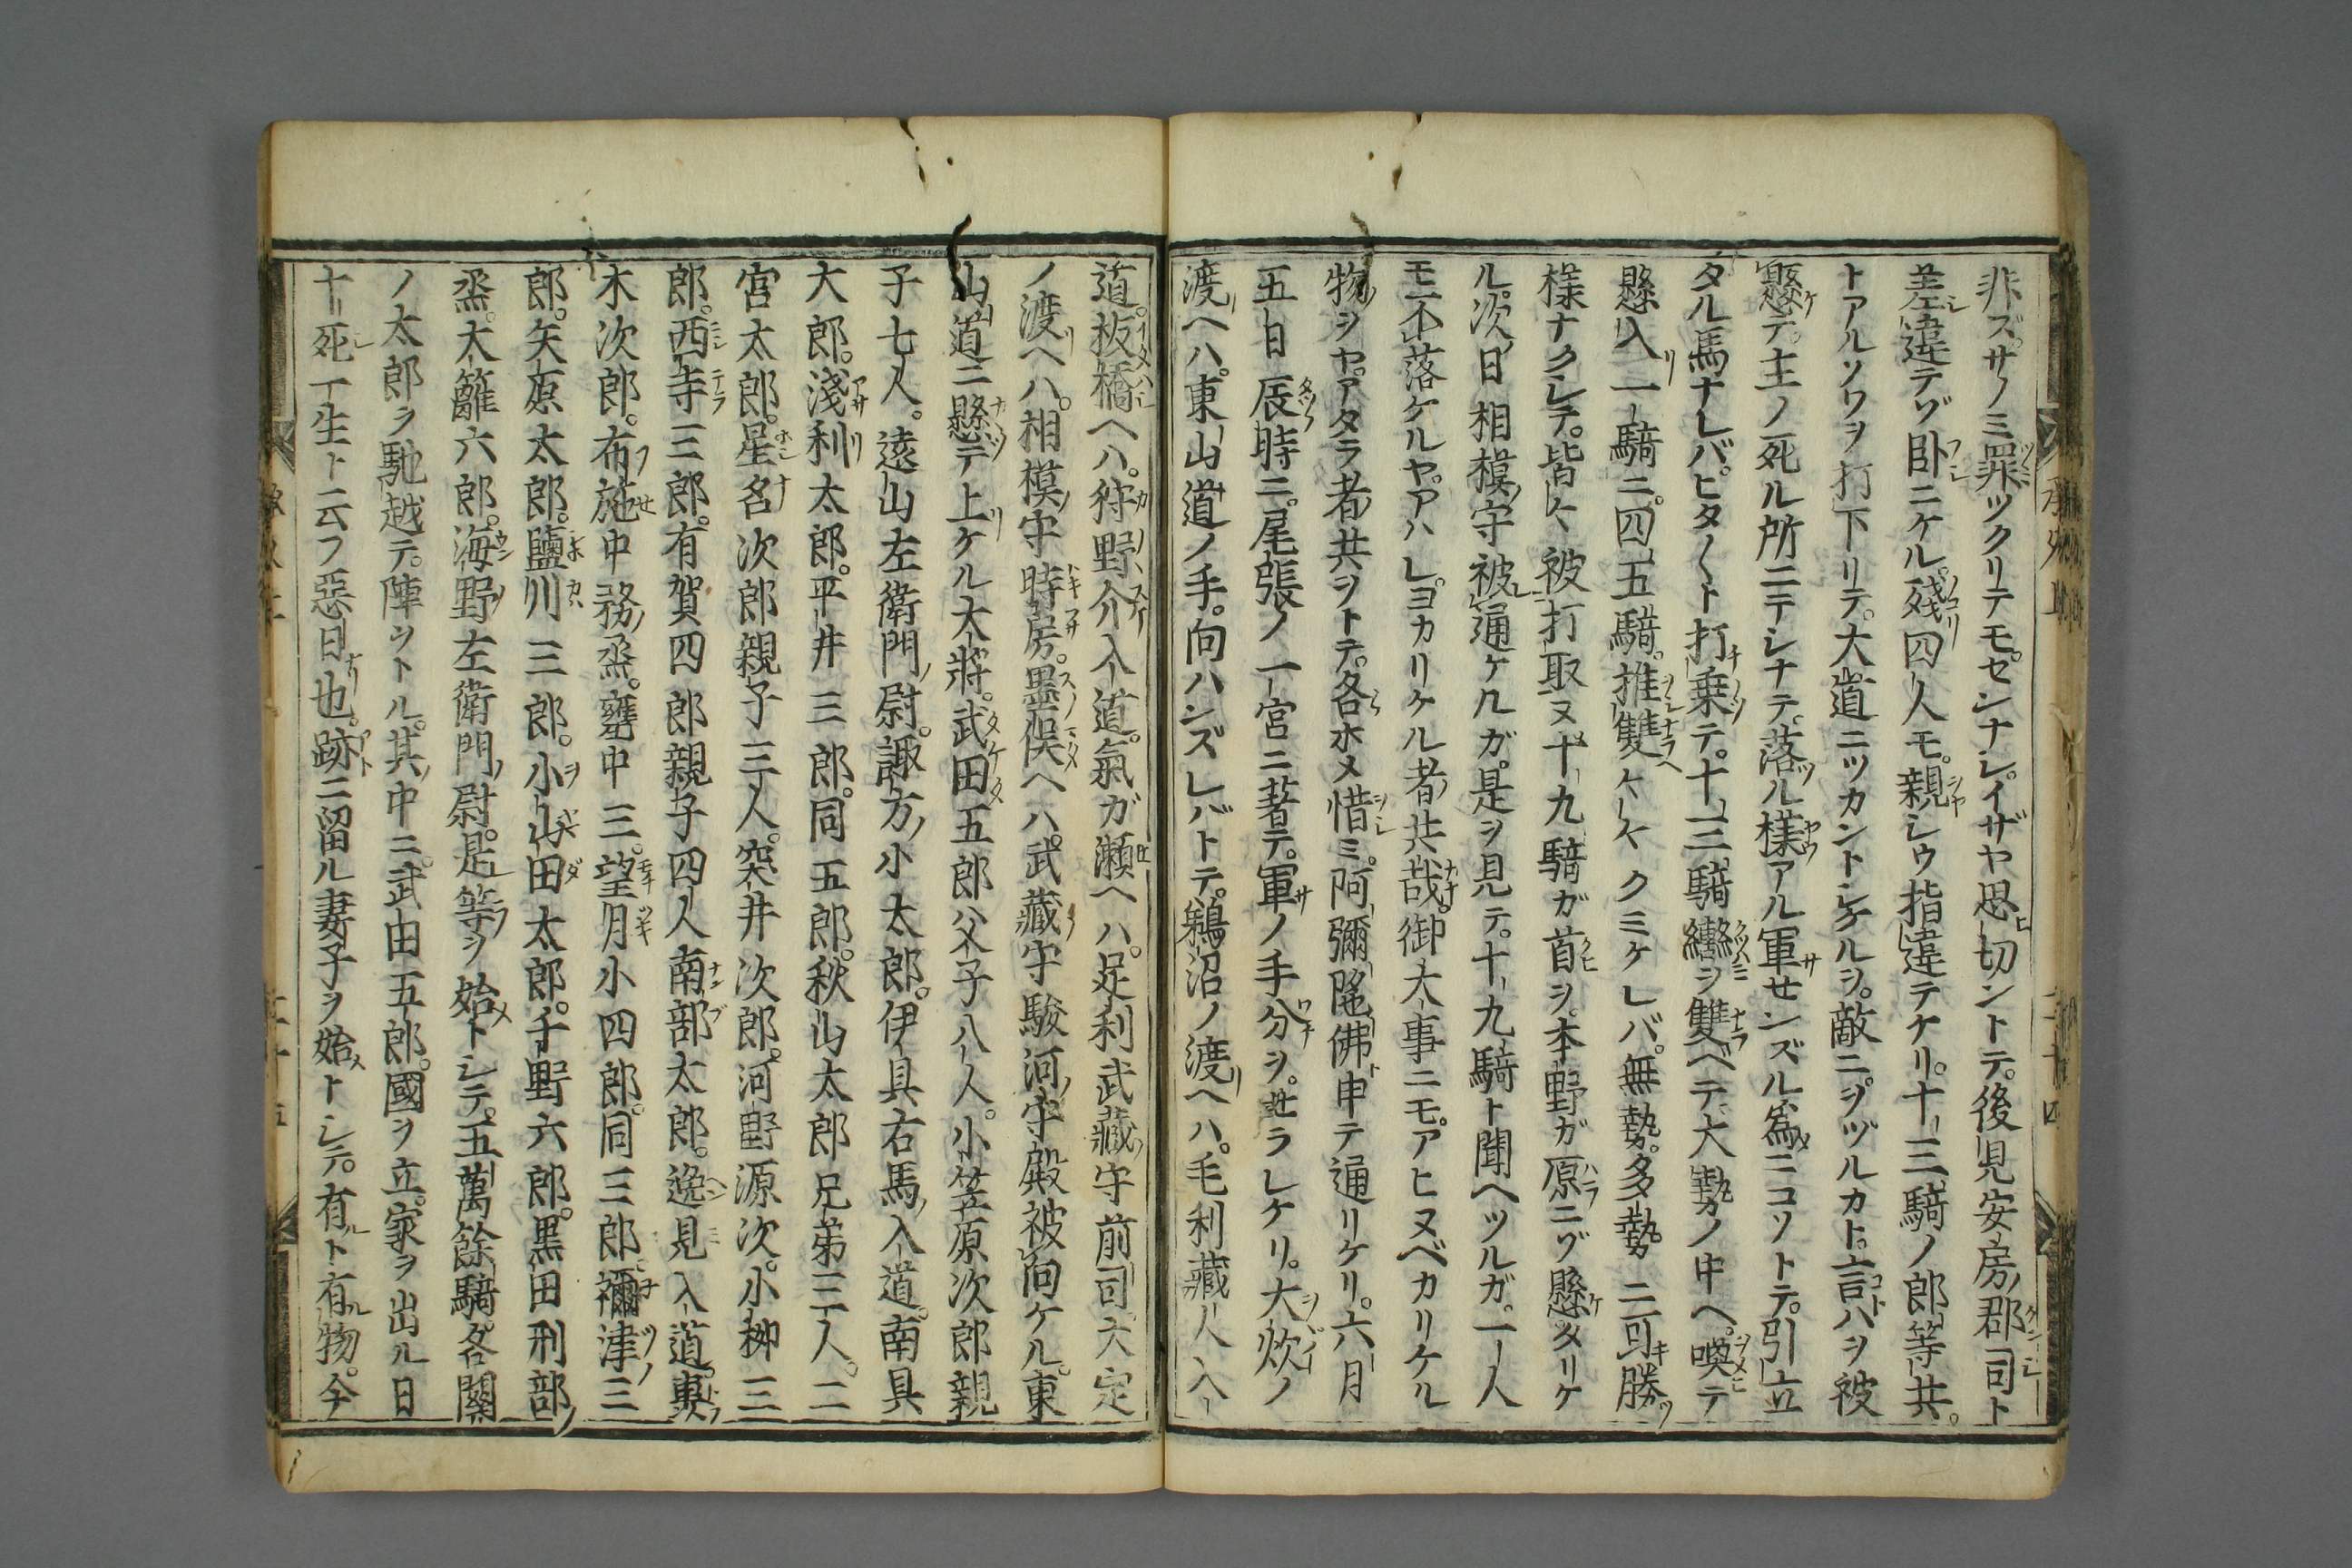 非ズ。サノミ罪ツクリテモ。センナシ。イザヤ思切ントテ。後見安房郡司ト
差違テゾ卧ニケル。殘四人モ。親シウ指違テケリ。十三騎ノ郎等共。
トアルソワヲ打下リテ。大道ニツカントシケルヲ。敵ニヲヅルカト。言ハヲ被
懸テ。主ノ死ル所ニテシナテ。落ル樣アル軍センズル爲ニコソトテ。引立
タル馬ナレバ。ヒタ〳〵ト打乘テ。十三騎轡ヲ雙ベテ大勢ノ中ヘ。喚テ
懸入一騎ニ。四五騎。推雙ヘ〳〵クミケレバ。無勢。多勢ニ可勝
樣ナクシテ。皆被打取ヌ。十九騎ガ首ヲ。本野ガ原ニゾ懸タリケ
ル。次日相模守被通ケルガ。是ヲ見テ。十九騎ト聞ヘツルガ。一人
モ不落ケルヤ。アハレ。ヨカリケル者共哉。御大事ニモ。アヒヌベカリケル
物ヲヤ。アタラ者共ヲトテ。各ホメ惜ミ。阿彌陀佛申テ通リケリ。六月
五日辰時ニ。尾張ノ一宮ニ著テ。軍ノ手分ヲ。セラレケリ。大炊ノ
渡ヘハ。東山道ノ手。向ハンズレバトテ。鵜沼ノ渡ヘハ。毛利藏人入
道。板橋ヘハ。狩野介入道。氣ガ瀬ヘハ。足利武藏守前司。大定
ノ渡ヘハ。相模守時房。墨俣ヘハ。武藏守駿河守殿被向ケル。東
山道ニ懸テ上ケル大將。武田五郎父子八人。小笠原次郎親
子七人。遠山左衞門尉。諏方小太郎。伊具右馬入道。南具
大郎。淺利太郎。平井三郎。同五郎。秋山太郎兄弟三人。二
宮太郎。星名次郎親子三人。突井次郎。河野源次。小栁三
郎。西寺三郎。有賀四郎親子四人南部太郎。逸見入道。轟
木次郎。布施中務烝。甕中三。望月小四郎。同三郎。禰津三
郎。矢原太郎。鹽川三郎。小山田太郎。千野六郎。黑田刑部
烝。大籬六郎。海野左衞門尉。是等ヲ始トシテ。五萬餘騎。各關
ノ太郎ヲ馳越テ。陣ヲトル。其中ニ。武田五郎。國ヲ立。家ヲ出ル日
十死一生ト云フ惡日也。跡ニ留ル妻子ヲ始トシテ。有ト有物。今